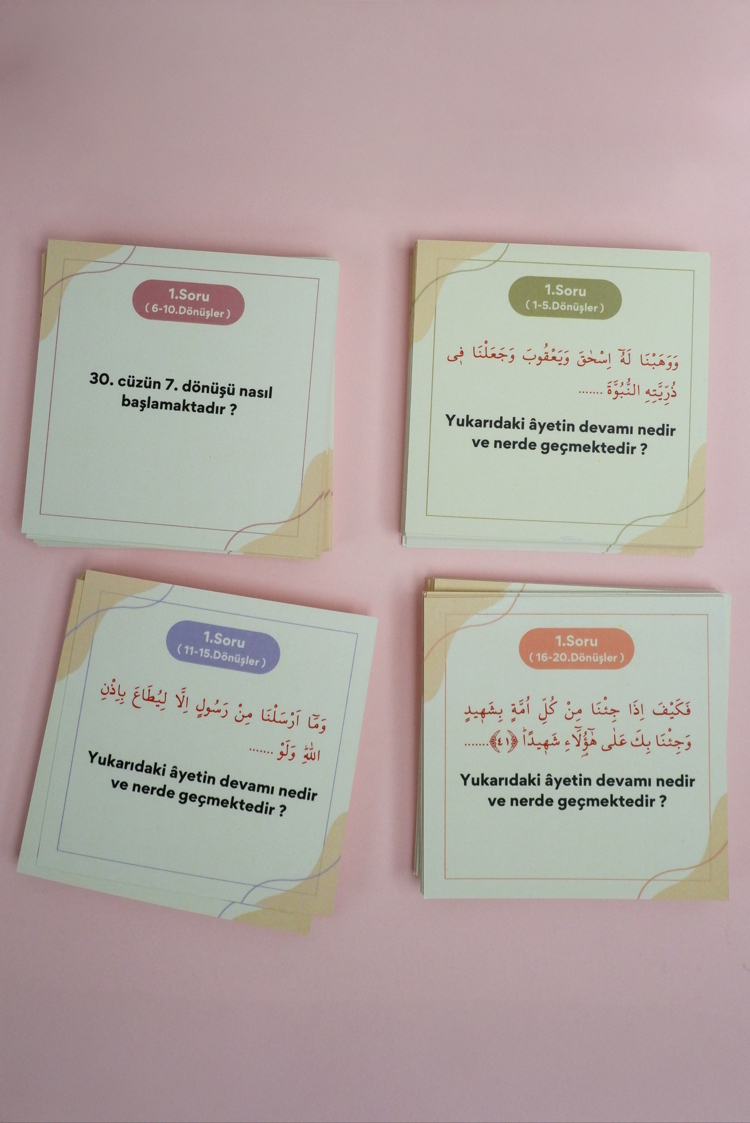 1.Soru
( 6-10.Dönüşler )
30. cüzün 7. dönüşü nasıl
başlamaktadır ?
1.Soru
( 1-5.Dönüşler )
وَوَهَبْنَا لَهُٓ اِسْحٰقَ وَيَعْقُوبَ وَجَعَلْنَا ف۪ى
ذُرِّيَّتِهِ النُّبُوَّةَ .......
Yukarıdaki âyetin devamı nedir
ve nerde geçmektedir ?
1.Soru
( 11-15.Dönüşler )
وَمَٓا اَرْسَلْنَا مِنْ رَسُولٍ اِلَّا لِيُطَاعَ بِاِذْنِ
اللّٰهِ وَلَوْ .......
Yukarıdaki âyetin devamı nedir
ve nerde geçmektedir ?
1.Soru
( 16-20.Dönüşler )
فَكَيْفَ اِذَا جِئْنَا مِنْ كُلِّ اُمَّةٍ بِشَه۪يدٍ
وَجِئْنَا بِكَ عَلٰى هٰٓؤُ۬لَٓاءِ شَه۪يدًا ﴿٤١﴾.......
Yukarıdaki âyetin devamı nedir
ve nerde geçmektedir ?